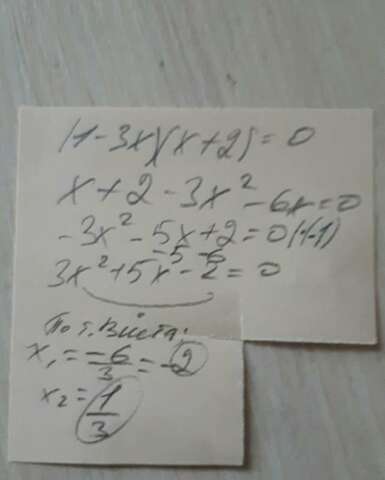 (1-3x)(x+2)=0
x+2-3x²-6x=0
-3x²-5x+2=0|·(-1)
-5 -6
3x²+5x-2=0
По т. Вієта:
x₁=-6/3=-2
x₂=1/3